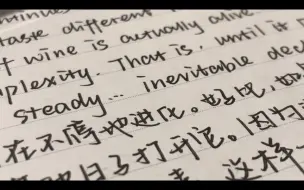 taste different
wine is actually alive
plexity. That is, until it
steady... inevitable
在不停地进化。好比
打开它。因为
这样